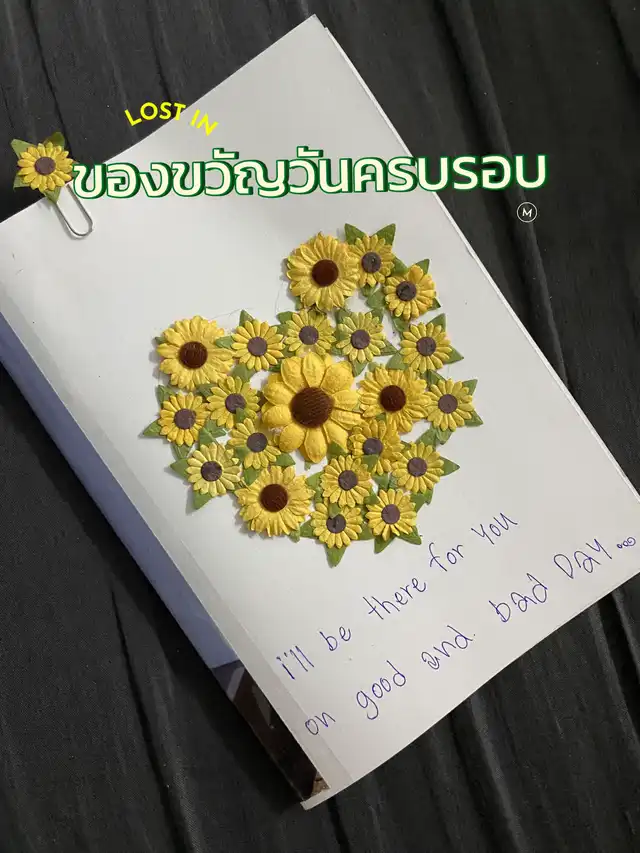 LOST IN
ของขวัญวันครบรอบ
M
i'll be there for you
on good and bad Day...